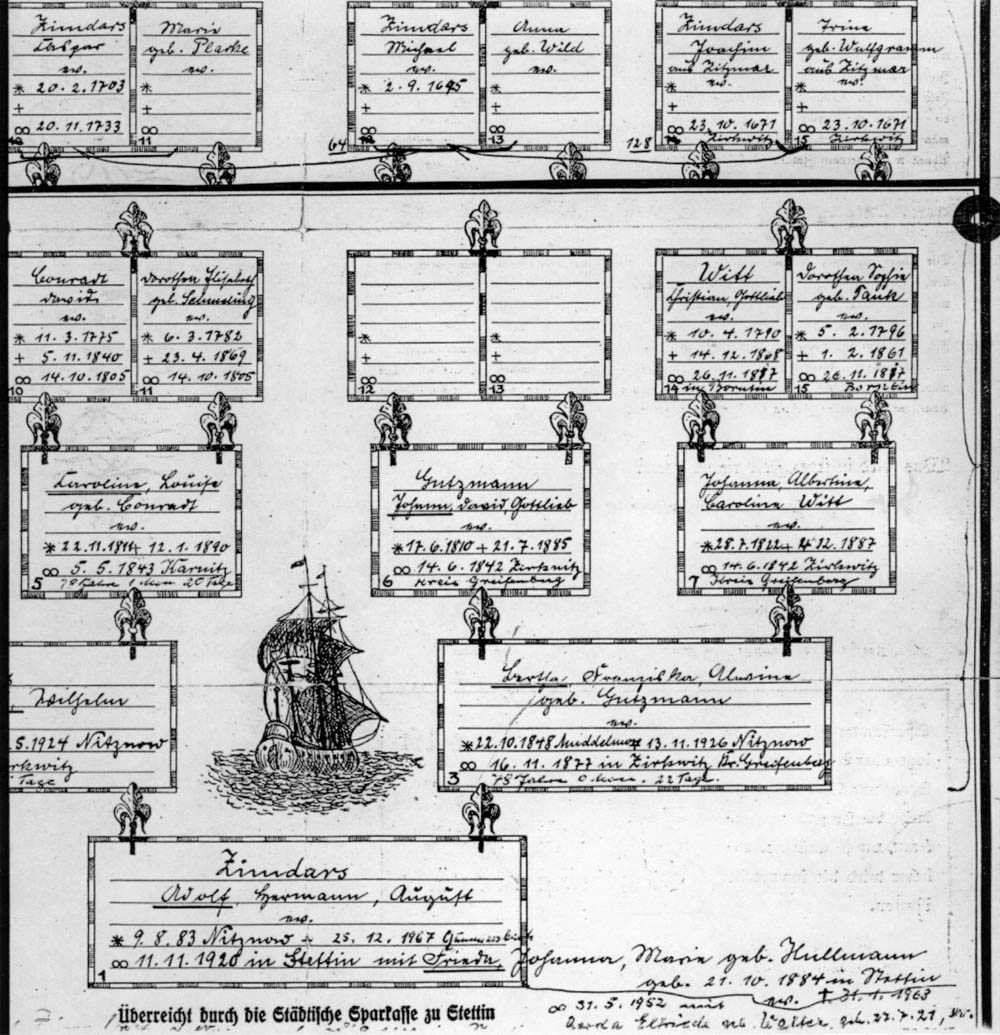 Zimdars
Caspar
ev.
* 20.2.1703
+
∞ 20.11.1733
Marie
geb. Placke
ev.
*
+
∞
11
Zimdars
Michael
ev.
* 2.9.1695
+
∞
64
Anna
geb. Wild
ev.
*
+
∞
13
Zimdars
Joachim
aus Zitzmar
ev.
*
+
∞ 23.10.1671
128 14 Zirkwitz
Trine
geb. Wulfgramm
aus Zitzmar
ev.
*
+
∞ 23.10.1671
15 Zirkwitz
Conradt
David
ev.
* 11.3.1775
+ 5.11.1840
∞ 14.10.1805
10
Dorothea Elisabeth
geb. Schmeling
ev.
* 6.3.1782
+ 23.4.1869
∞ 14.10.1805
11
*
+
∞
12
*
+
∞
13
Witt
Christian, Gottlieb
ev.
* 10.4.1790
+ 14.12.1868
∞ 26.11.1817
14 in Borntin
Dorothea Sophie
geb. Pauk
ev.
* 5.2.1796
+ 1.2.1861
∞ 26.11.1817
15 Borntin
Caroline, Louise
geb. Conradt
ev.
* 22.11.1811 + 12.1.1890
∞ 5.5.1843 Karnitz
5 78 Jahre 1 Mon. 20 Tage
Gutzmann
Johann, David, Gottlieb
ev.
* 17.6.1810 + 21.7.1885
∞ 14.6.1842 Zirkwitz
6 Kreis Greifenberg
Johanna, Albertine,
Caroline Witt
ev.
* 28.7.1822 + 4.12.1887
∞ 14.6.1842 Zirkwitz
7 Kreis Greifenberg
Wilhelm
5.1924 Nitznow
rkwitz
Tage
Bertha, Franziska, Alwine
geb. Gutzmann
ev.
* 22.10.1848 Muddelmow + 13.11.1926 Nitznow
∞ 16.11.1877 in Zirkwitz Kr. Greifenberg
3 78 Jahre 0 Mon. 22 Tage.
Zimdars
Adolf, Hermann, August
ev.
* 9.8.83 Nitznow + 25.12.1967
∞ 11.11.1920 in Stettin mit Frieda, Johanna, Marie geb. Hullmann
1
geb. 21.10.1884 in Stettin
ev. + 31.1.1963
∞ 31.5.1952 mit
Gerda Elfriede geb. Walter, geb. 27.7.21, ev.
Überreicht durch die Städtische Sparkasse zu Stettin